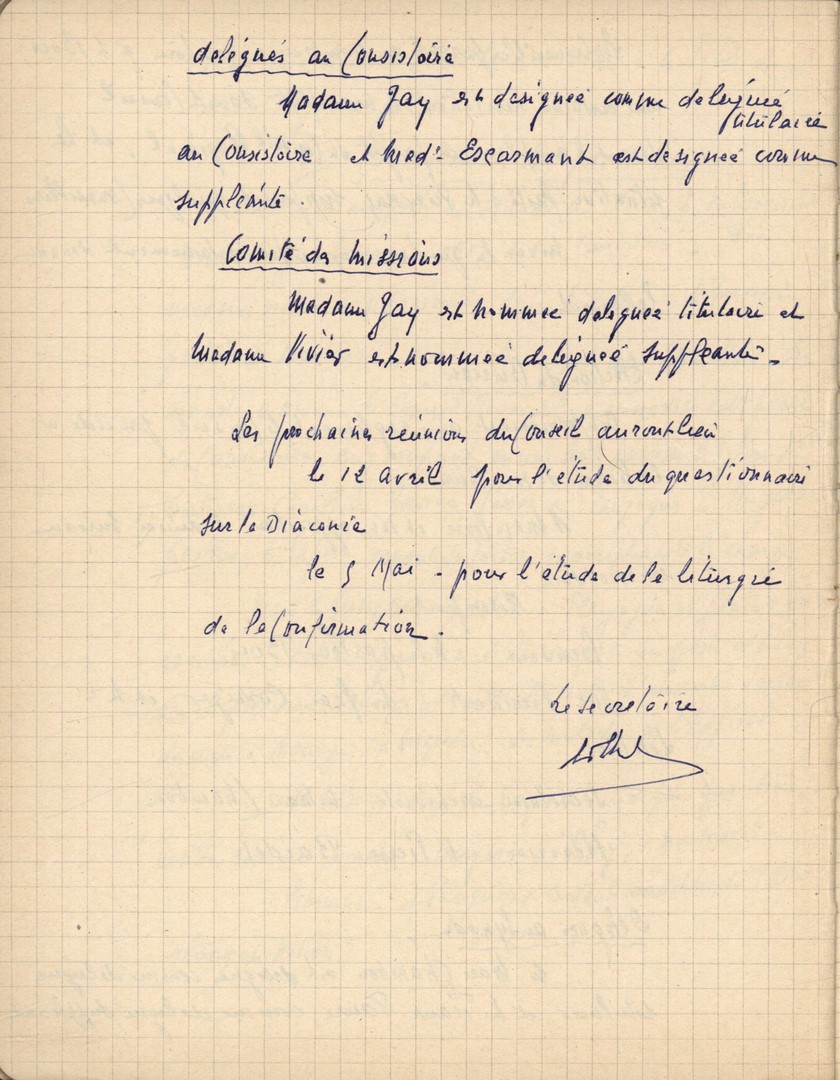 délégués au Consistoire
Madame Jay est désignée comme déléguée
titulaire
au Consistoire et Mad. Escarmant est désignée comme
suppléante.
Comité des missions
Madame Jay est nommée déléguée titulaire et
Madame Vivier est nommée déléguée suppléante.
Les prochaines réunions du Conseil auront lieu
le 12 avril pour l'étude du questionnaire
sur la Diaconie
le 5 Mai - pour l'étude de la liturgie
de la Confirmation.
Le secrétaire